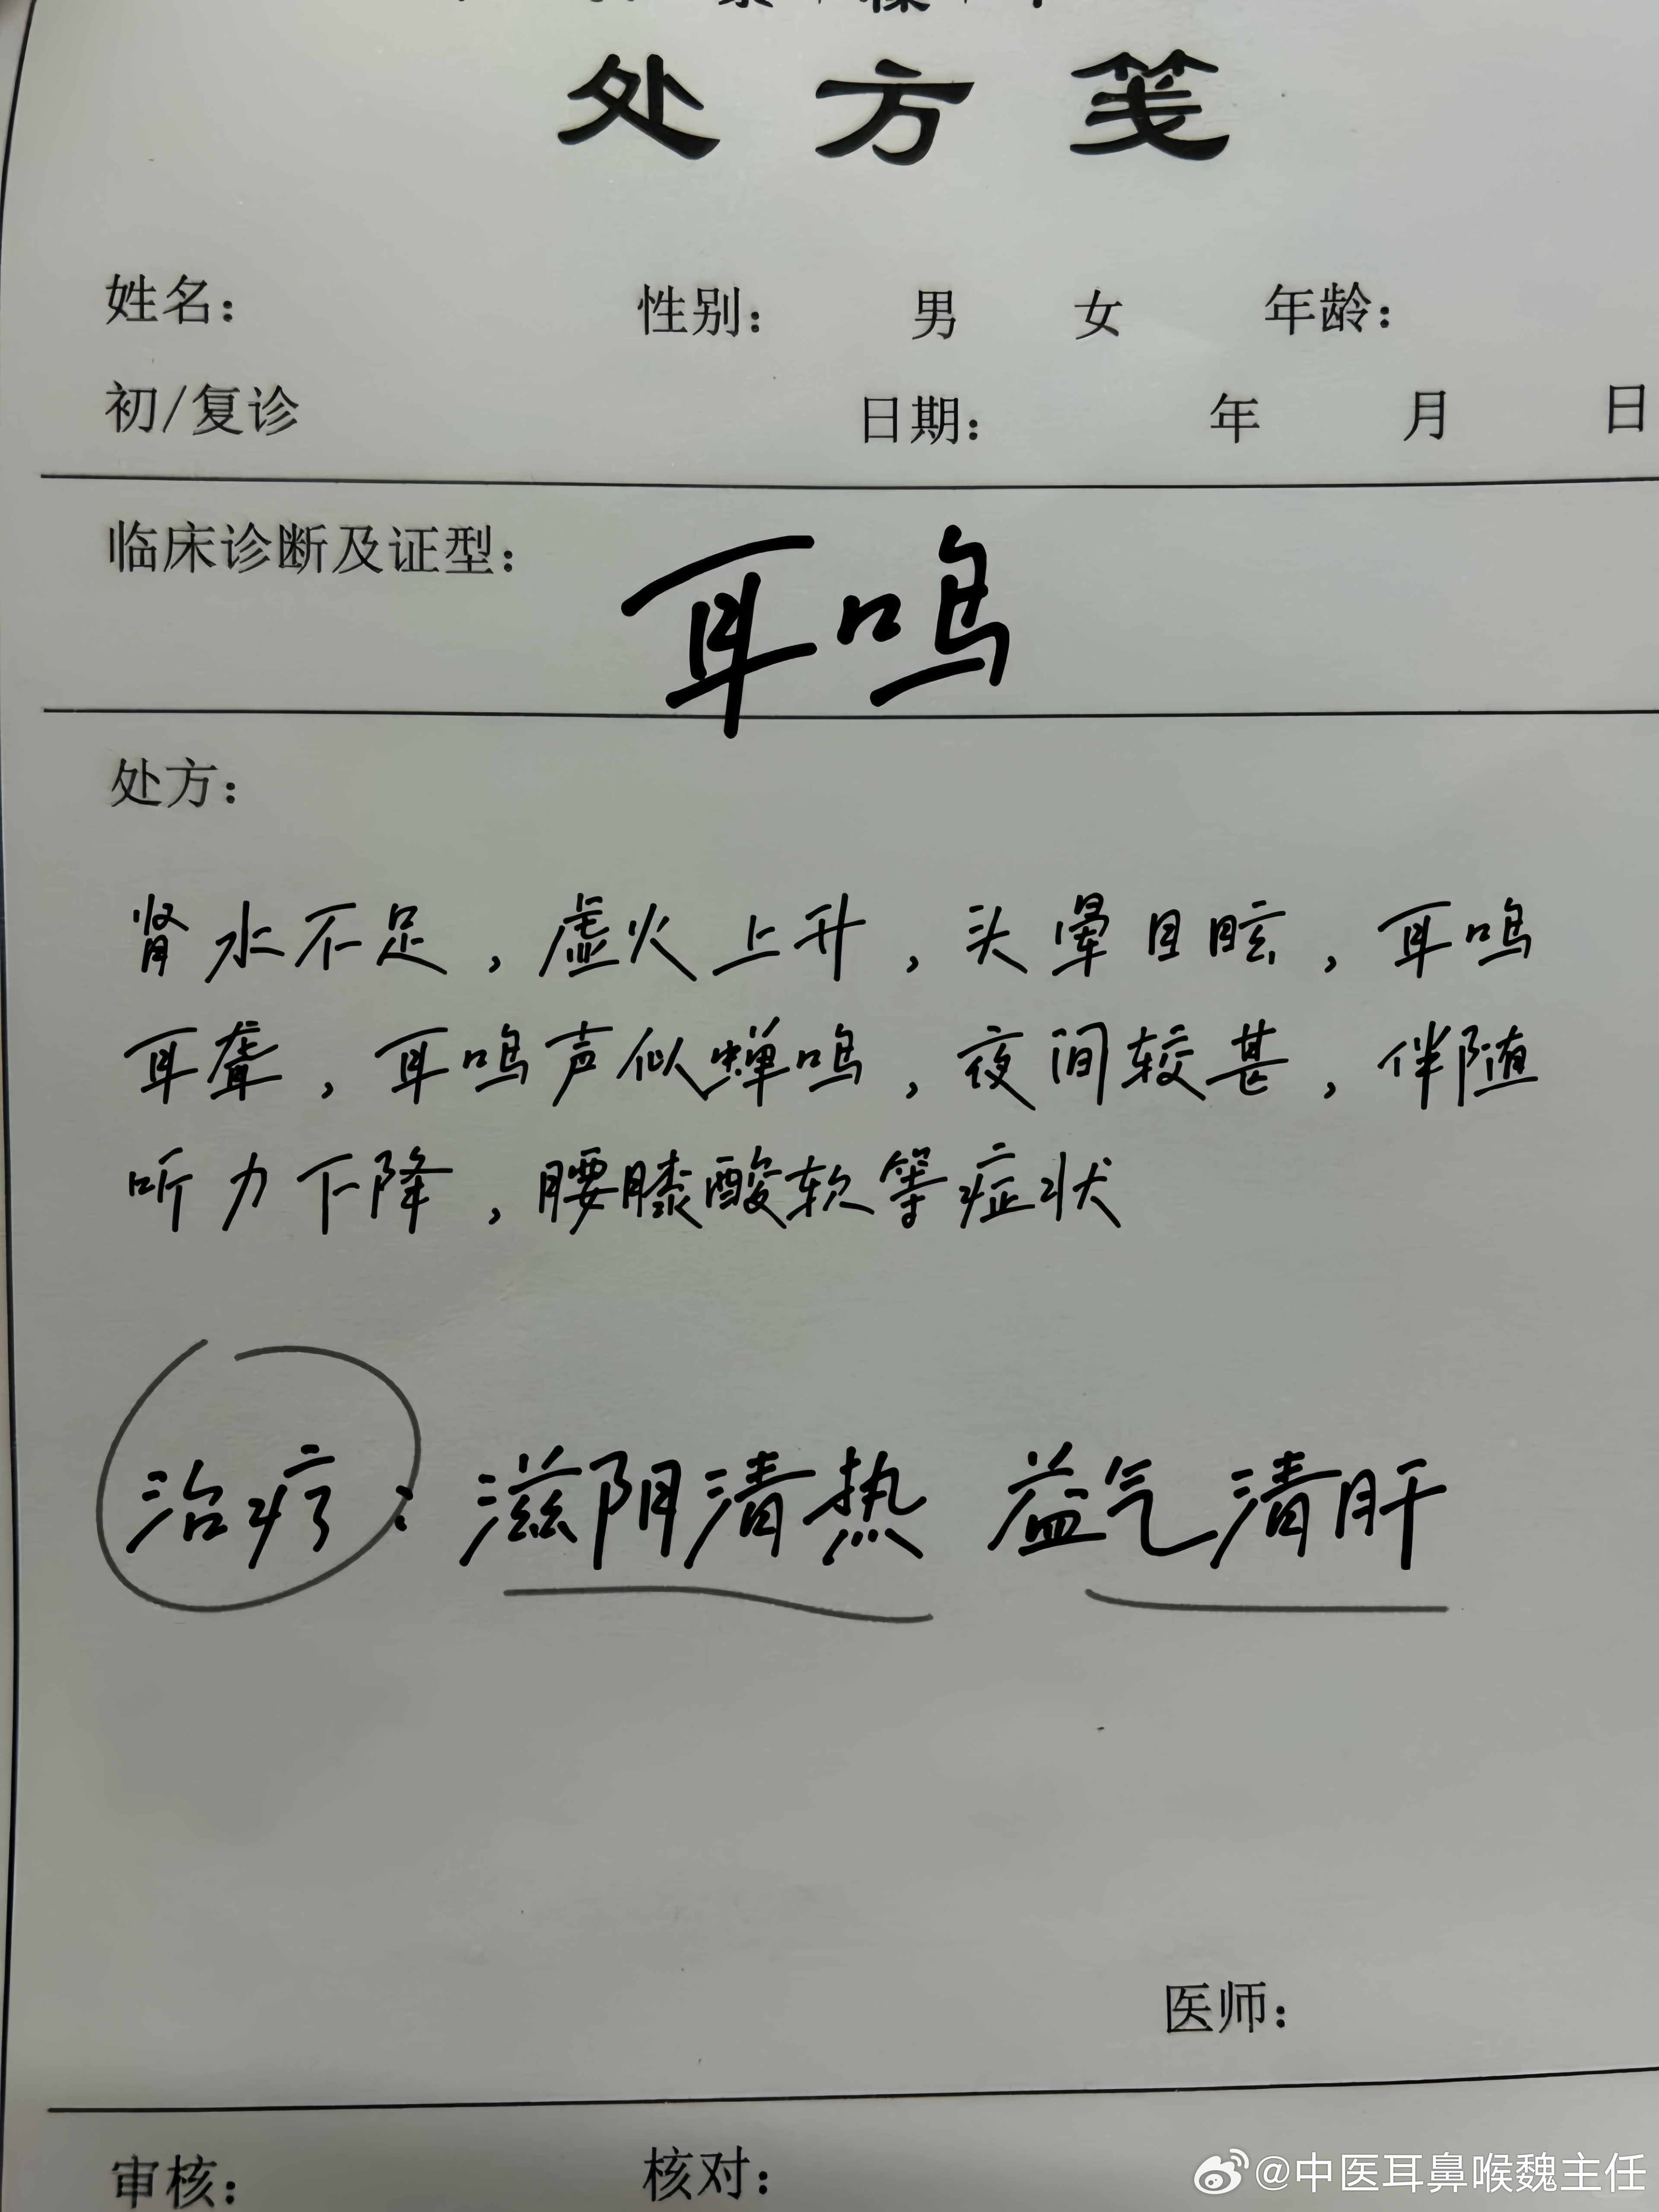 处方笺
姓名： 性别： 男 女 年龄：
初/复诊 日期： 年 月 日
临床诊断及证型： 耳鸣
处方：
肾水不足，虚火上升，头晕目眩，耳鸣
耳聋，耳鸣声似蝉鸣，夜间较甚，伴随
听力下降，腰膝酸软等症状
治疗：滋阴清热 益气清肝
医师：
审核： 核对：
@中医耳鼻喉魏主任